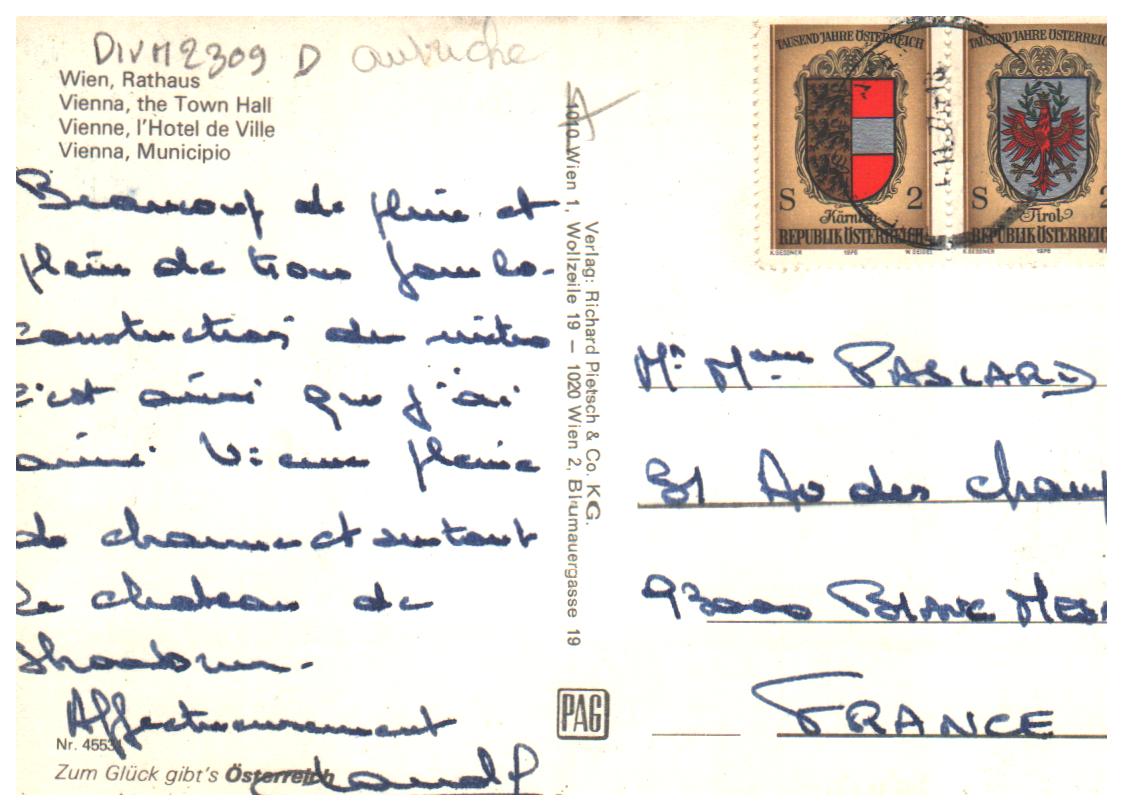 DIVM2309 D autriche
Wien, Rathaus
Vienna, the Town Hall
Vienne, l'Hotel de Ville
Vienna, Municipio
Beaucoup de pluie et
plein de trous pour la
construction du métro
c'est ainsi que j'ai
aimé Vienne pleine
de charme et surtout
le chateau de
Affectueusement
Nr. 4553
Zum Glück gibt's Österreich
1010 Wien 1, Wollzeile 19 — 1020 Wien 2, Blumauergasse 19
Verlag: Richard Pietsch & Co. KG.
PAG
TAUSEND JAHRE ÖSTERREICH
S 2
Kärnten
REPUBLIK ÖSTERREICH
K.GESSNER 1976 W.SEIDEL
TAUSEND JAHRE ÖSTERREIC
S 2
Tirol
REPUBLIK ÖSTERR
K.GESSNER 1976
Mr Mme PASLARD
81 Av des champ
93000 BLANC MES
FRANCE